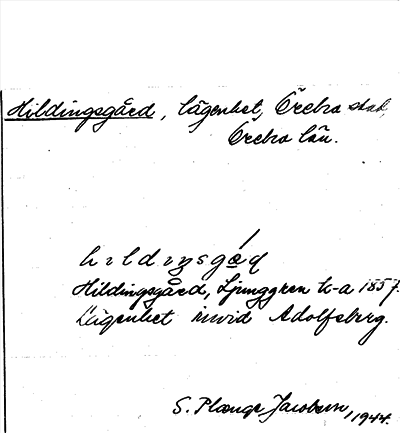 Hildingsgård, lägenhet, Örebro stad,
Örebro län.
Hildingsgård, Ljunggren k-a 1857.
Lägenhet invid Adolfsberg.
S. Plænge Jacobson, 1944.